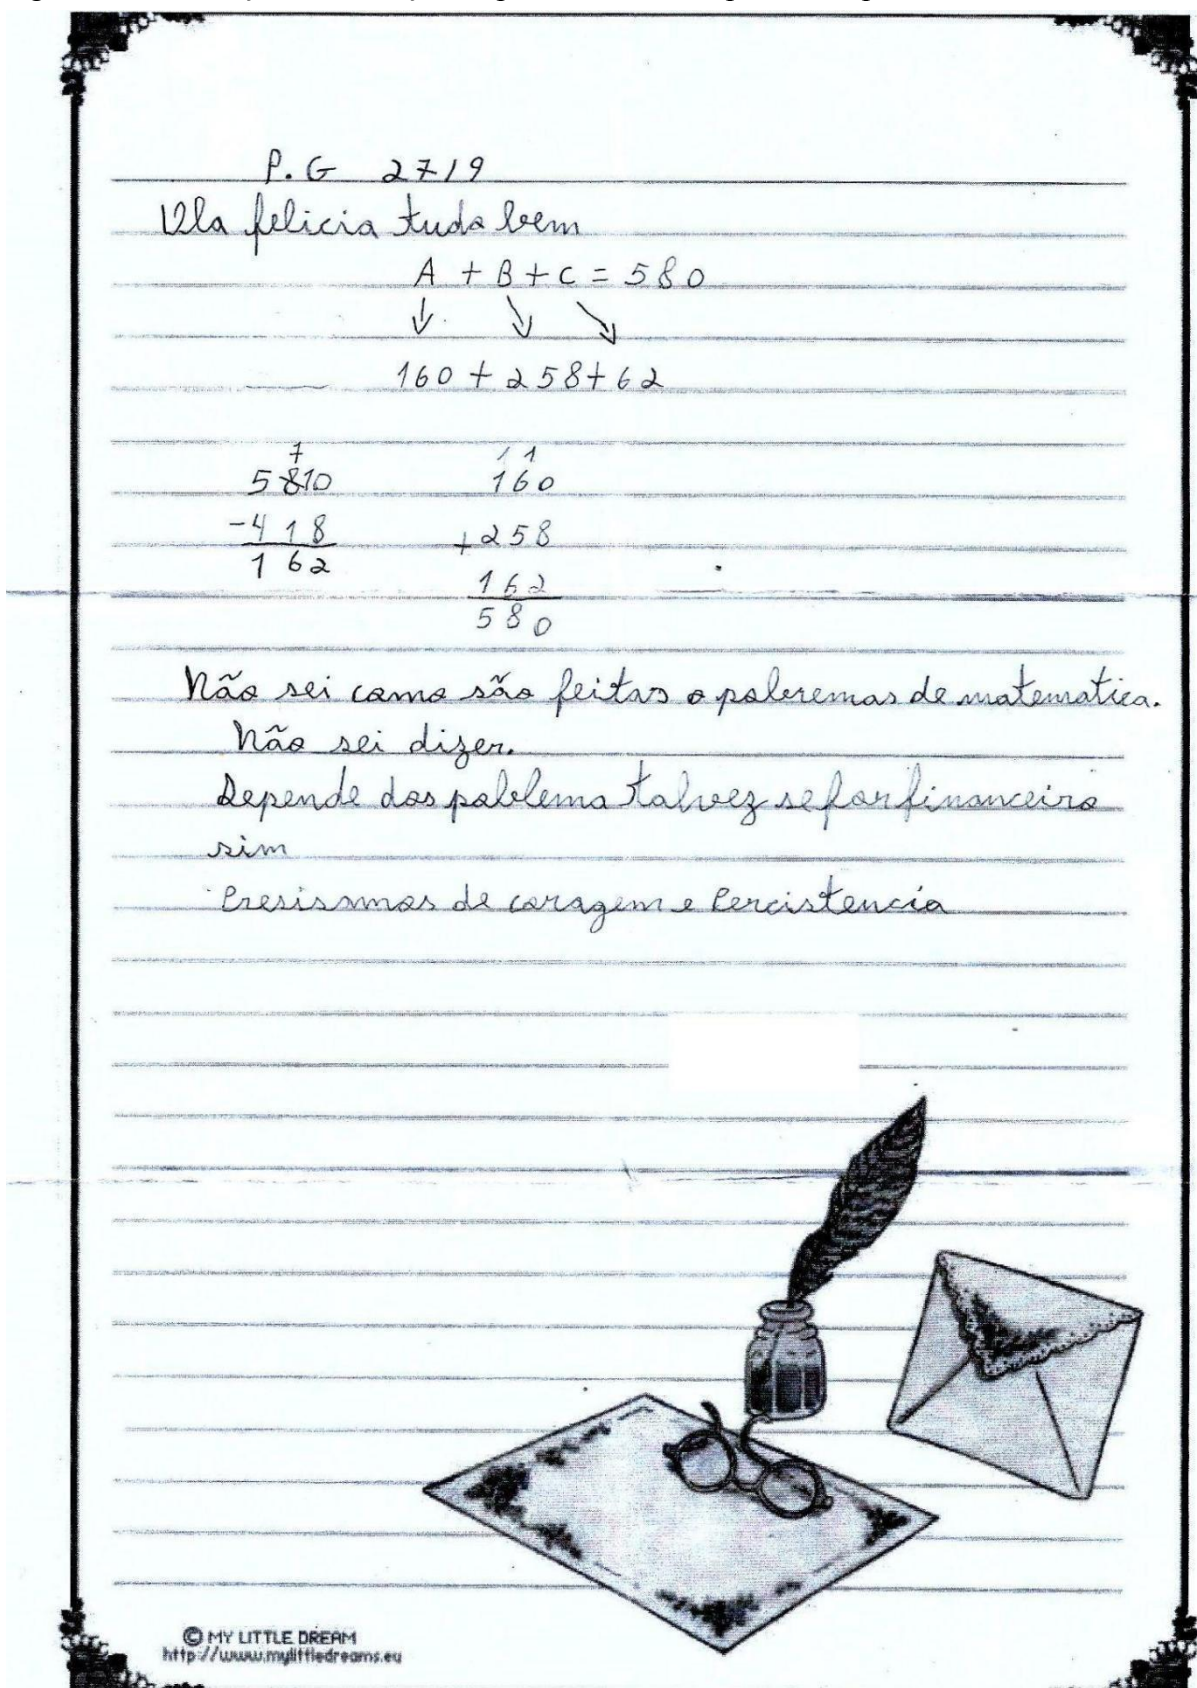 P.G 27/9
Ola felicia tudo bem
A + B + C = 580
160 + 258 + 62
7
5810
- 418
162
1 1
160
+ 258
162
580
Não sei como são feitas o poleremas de matematica.
Não sei dizer.
Depende dos poblema talvez se for financeiro
sim
Presisamos de coragem e Percistencia
© MY LITTLE DREAM
http://www.mylittledreams.eu